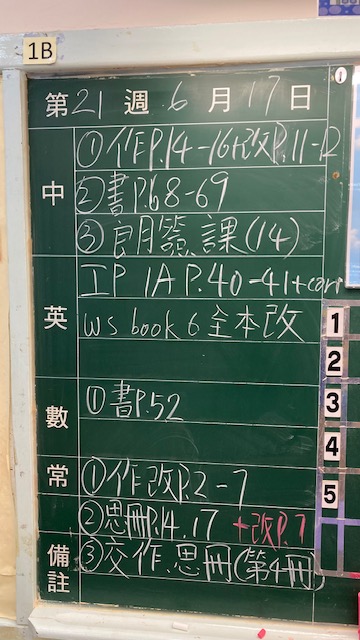 1B
第21週 6月17日
中
①作P.14-16+改P.11-12
②書P.68-69
③朗簽 課(14)
英
IP 1A P.40-41+corr
WS book 6 全本改
數
①書P.52
常
①作改P.2-7
②思冊P.14.17 +改P.7
備註
③交作.思冊(第4冊)
1
2
3
4
5